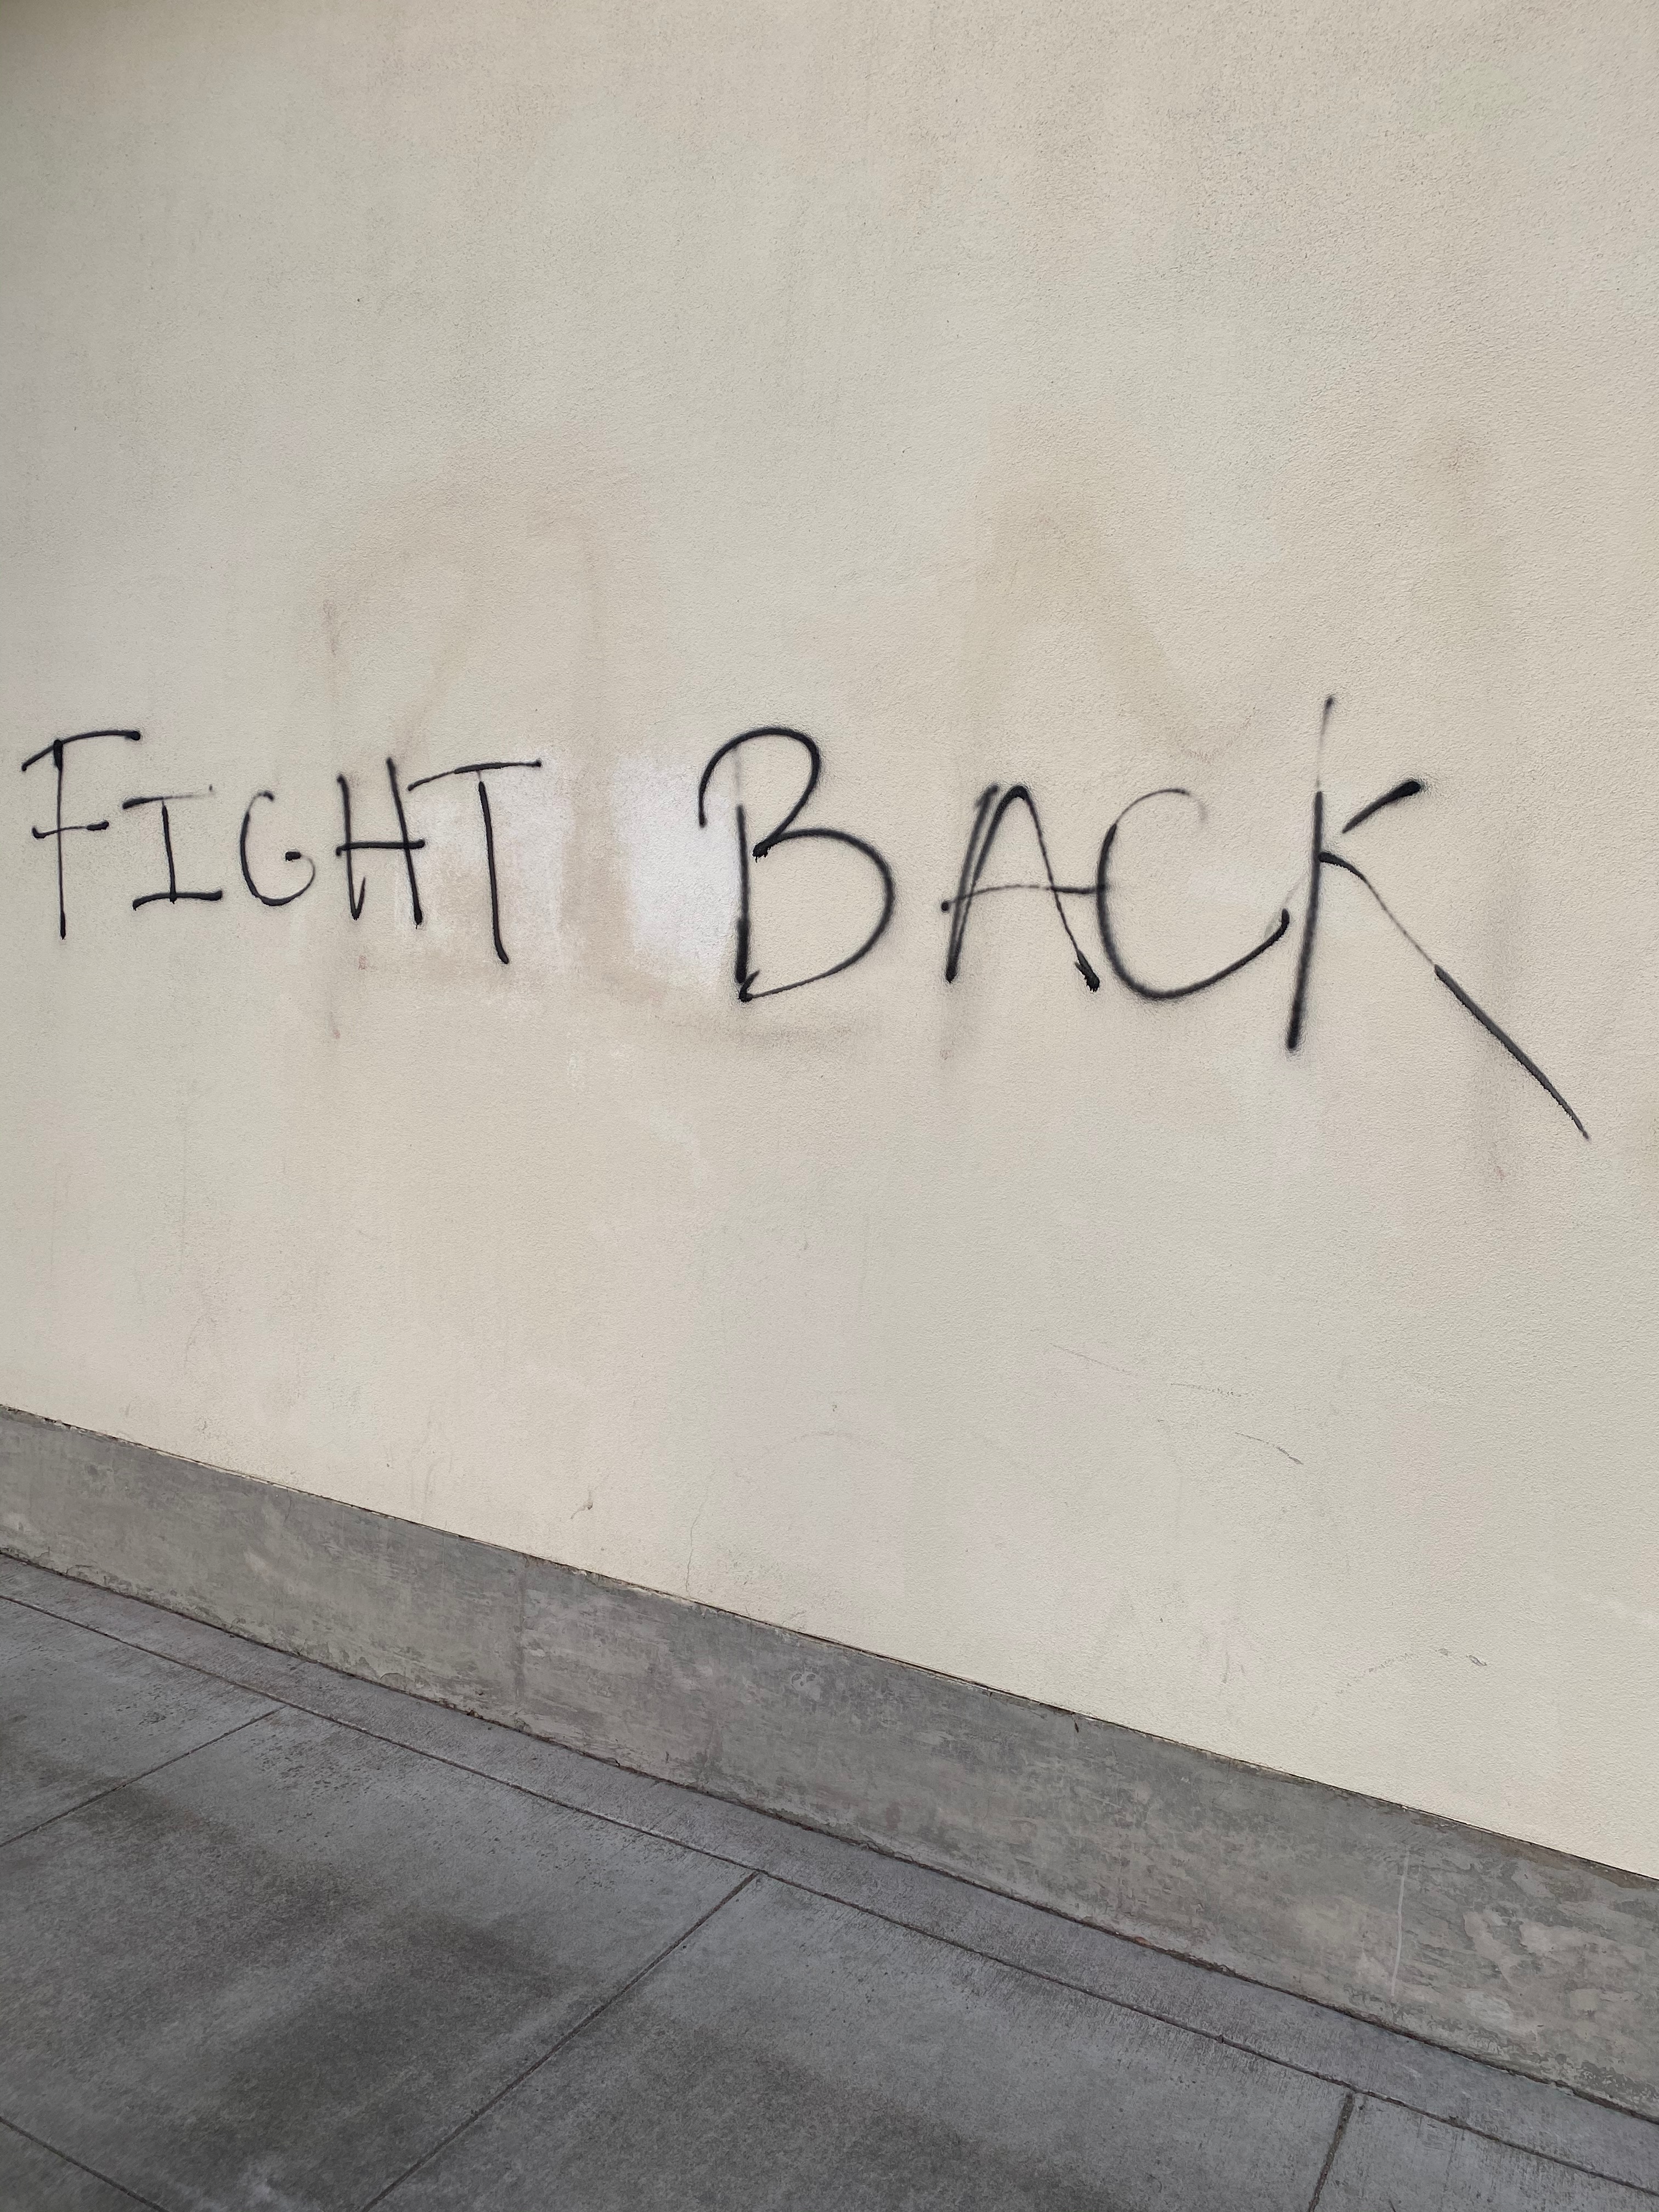 FIGHT BACK